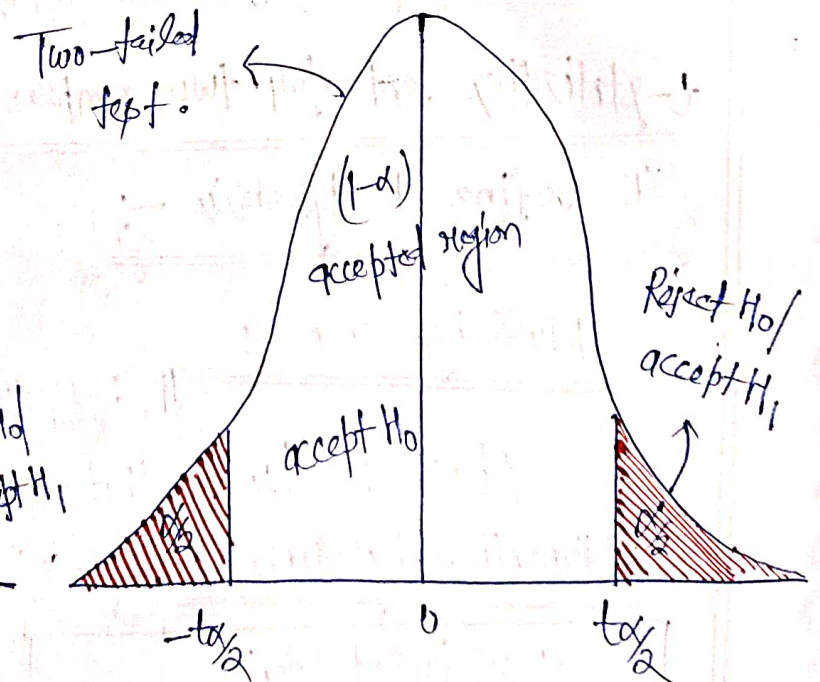 Two-tailed
test.
(1-α)
accepted region
Reject H0/
accept H1
accept H0
pt H1
α/2
α/2
-tα/2
0
tα/2